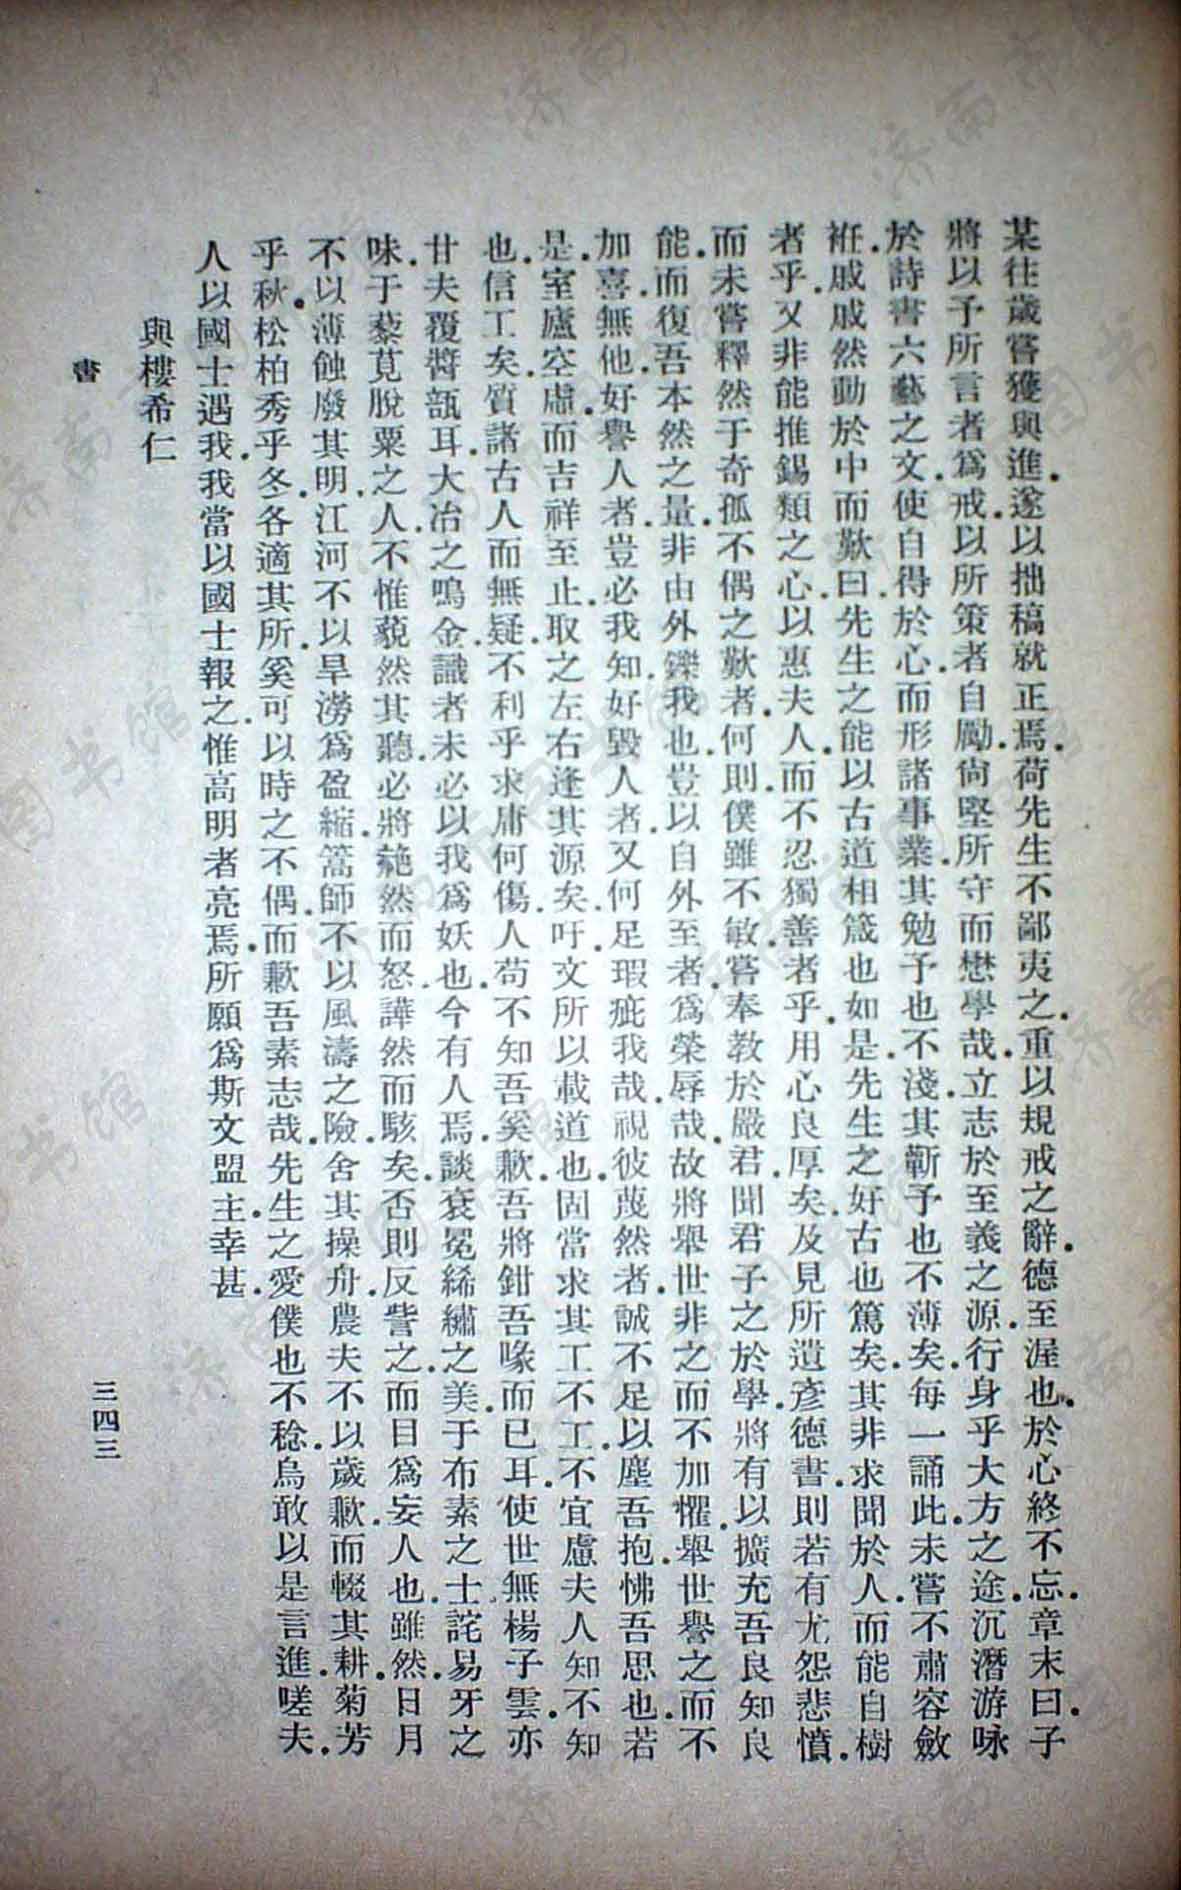 某往歲嘗獲與進．遂以拙稿就正焉．荷先生不鄙夷之．重以規戒之辭．德至渥也．於心終不忘．章末曰．子
將以予所言者爲戒．以所策者自勵．尙堅所守而懋學哉．立志於至義之源．行身乎大方之途．沉潛游咏
於詩書六藝之文．使自得於心．而形諸事業．其勉予也不淺．其蘄予也不薄矣．每一誦此．未嘗不肅容斂
袵．戚戚然動於中而歎曰．先生之能以古道相箴也如是．先生之好古也篤矣．其非求聞於人．而能自樹
者乎．又非能推錫類之心．以惠夫人．而不忍獨善者乎．用心良厚矣．及見所遺彥德書．則若有尤怨悲憤．
而未嘗釋然于奇孤不偶之歎者．何則．僕雖不敏．嘗奉教於嚴君．聞君子之於學．將有以擴充吾良知良
能．而復吾本然之量．非由外鑠我也．豈以自外至者．爲榮辱哉．故將舉世非之而不加懼．舉世譽之而不
加喜．無他．好譽人者．豈必我知．好毀人者．又何足瑕疵我哉．視彼蔑然者．誠不足以塵吾抱．怫吾思也．若
是．室廬空虛．而吉祥至止．取之左右逢其源矣．吁．文所以載道也．固當求其工不工．不宜慮夫人知不知
也．信工矣．質諸古人而無疑．不利乎求庸何傷．人苟不知吾奚歉．吾將鉗吾喙而已耳．使世無楊子雲．亦
甘夫覆醬瓿耳．大冶之鳴金．識者未必以我爲妖也．今有人焉．談袞冕絺繡之美．于布素之士．詫易牙之
味．于藜莧脫粟之人．不惟藐然其聽．必將艴然而怒．譁然而駭矣．否則反訾之．而目爲妄人也．雖然．日月
不以薄蝕廢其明．江河不以旱澇爲盈縮．篙師不以風濤之險．舍其操舟．農夫不以歲歉而輟其耕．菊芳
乎秋．松柏秀乎冬．各適其所．奚可以時之不偶．而歉吾素志哉．先生之愛僕也不稔．烏敢以是言進．嗟夫．
人以國士遇我．我當以國士報之．惟高明者亮焉．所願爲斯文盟主．幸甚．
與樓希仁
書
三四三